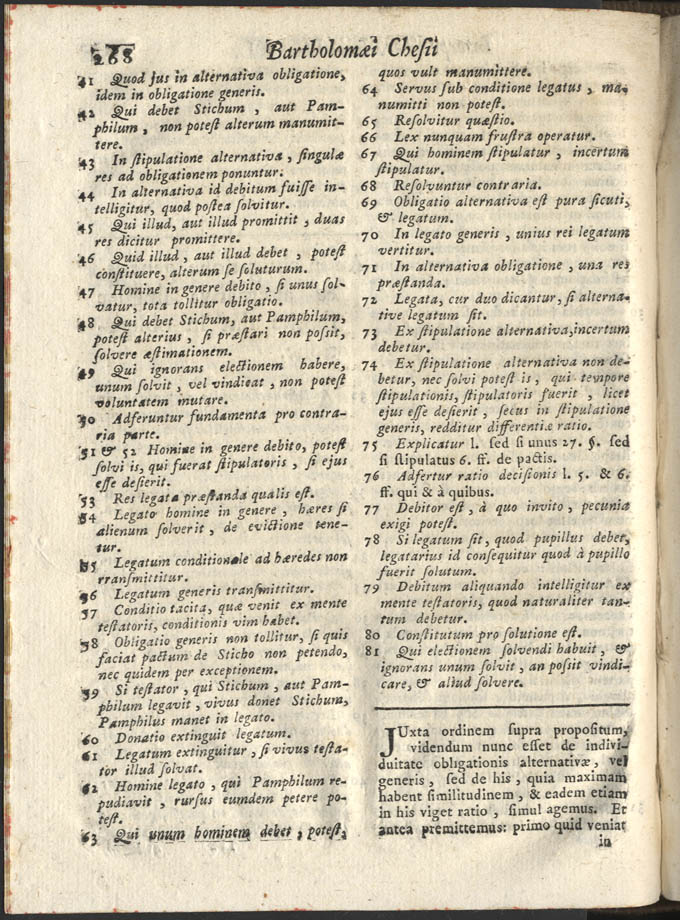 268
Bartholomæi Chesii
41 Quod jus in alternativa obligatione,
idem in obligatione generis.
42 Qui debet Stichum , aut Pam-
philum , non potest alterum manumit-
tere.
43 In stipulatione alternativa , singulæ
res ad obligationem ponuntur.
44 In alternativa id debitum fuisse in-
telligitur, quod postea solvitur.
45 Qui illud, aut illud promittit , duas
res dicitur promittere.
46 Quid illud , aut illud debet , potest
constituere, alterum se soluturum.
47 Homine in genere debito , si unus sol-
vatur, tota tollitur obligatio.
48 Qui debet Stichum, aut Pamphilum,
potest alterius , si præstari non possit,
solvere æstimationem.
49 Qui ignorans electionem habere,
unum solvit , vel vindicat , non potest
voluntatem mutare.
50 Adferuntur fundamenta pro contra-
ria parte.
51 & 52 Homine in genere debito, potest
solvi is, qui fuerat stipulatoris , si ejus
esse desierit.
53 Res legata præstanda qualis est.
54 Legato homine in genere , hæres si
alienum solverit , de evictione tene-
tur.
55 Legatum conditionale ad hæredes non
rransmittitur.
56 Legatum generis transmittitur.
57 Conditio tacita, quæ venit ex mente
testatoris, conditionis vim habet.
58 Obligatio generis non tollitur, si quis
faciat pactum de Sticho non petendo,
nec quidem per exceptionem.
59 Si testator , qui Stichum , aut Pam-
philum legavit , vivus donet Stichum,
Pamphilus manet in legato.
60 Donatio extinguit legatum.
61 Legatum extinguitur , si vivus testa-
tor illud solvat.
62 Homine legato , qui Pamphilum re-
pudiavit , rursus eumdem petere po-
test.
63 Qui unum hominem debet , potest,
quos vult manumittere.
64 Servus sub conditione legatus , ma-
numitti non potest.
65 Resolvitur quæstio.
66 Lex nunquam frustra operatur.
67 Qui hominem stipulatur , incertum
stipulatur.
68 Resolvuntur contraria.
69 Obligatio alternativa est pura sicuti,
& legatum.
70 In legato generis , unius rei legatum
vertitur.
71 In alternativa obligatione , una res
præstanda.
72 Legata, cur duo dicantur, si alterna-
tive legatum sit.
73 Ex stipulatione alternativa,incertum
debetur.
74 Ex stipulatione alternativa non de-
betur, nec solvi potest is , qui tempore
stipulationis, stipulatoris fuerit , licet
ejus esse desierit , secus in stipulatione
generis, redditur differentiæ ratio.
75 Explicatur l. sed si unus 27. §. sed
si stipulatus 6. ff. de pactis.
76 Adfertur ratio decisionis l. 5. & 6.
ff. qui & à quibus.
77 Debitor est, à quo invito , pecunia
exigi potest.
78 Si legatum sit, quod pupillus debet,
legatarius id consequitur quod à pupillo
fuerit solutum.
79 Debitum aliquando intelligitur ex
mente testatoris, quod naturaliter tan-
tum debetur.
80 Constitutum pro solutione est.
81 Qui electionem solvendi habuit , &
ignorans unum solvit , an possit vindi-
care, & aliud solvere.
JUxta ordinem supra propositum,
videndum nunc esset de indivi-
duitate obligationis alternativæ, vel
generis , sed de his , quia maximam
habent similitudinem , & eadem etiam
in his viget ratio , simul agemus. Et
antea premittemus: primo quid veniat
in